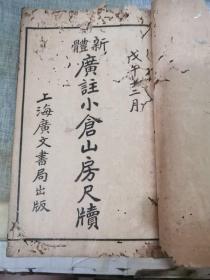 戊午十二月
新體
廣註小倉山房尺牘
上海廣文書局出版